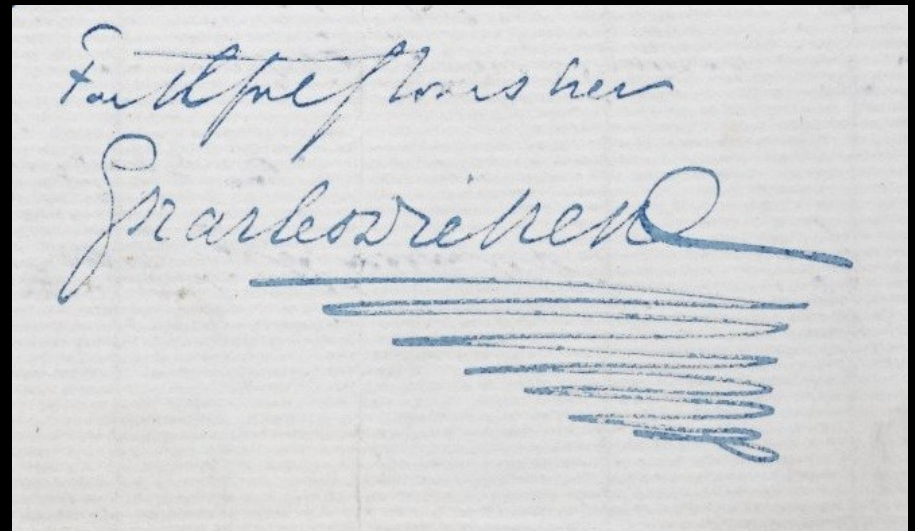 Faithfully yours ever
Charles Dickens